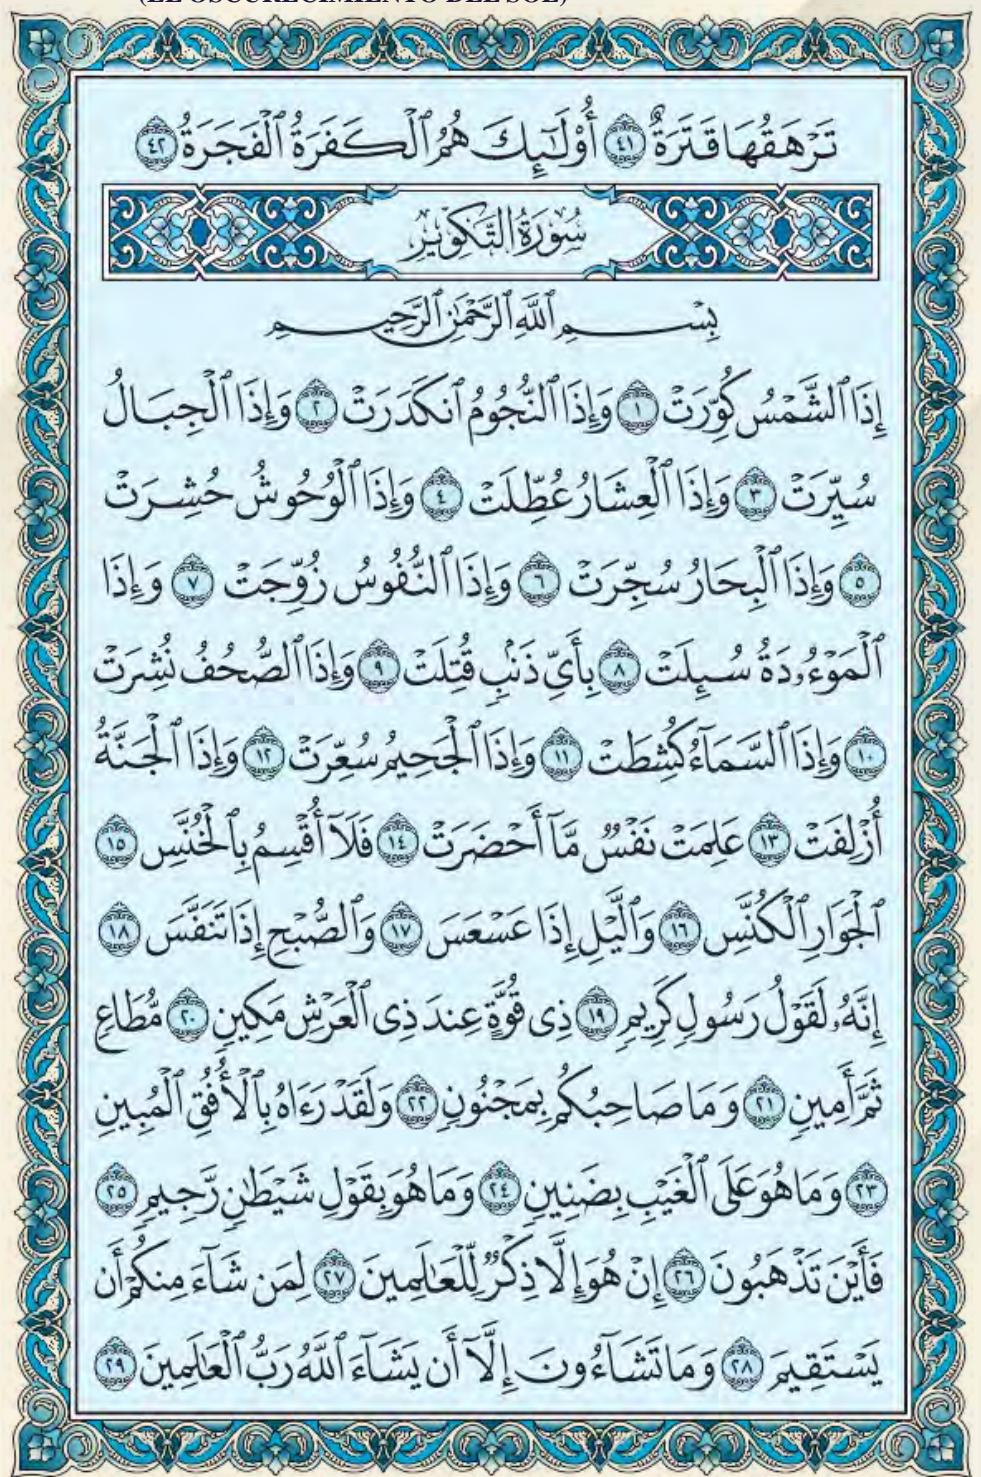 (EL OSCURECIMIENTO DEL SOL)
تَرْهَقُهَا قَتَرَةٌ ٤١ أُوْلَٰٓئِكَ هُمُ ٱلْكَفَرَةُ ٱلْفَجَرَةُ ٤٢
سُورَةُ التَّكْوِيرِ
بِسْمِ ٱللَّهِ ٱلرَّحْمَٰنِ ٱلرَّحِيمِ
إِذَا ٱلشَّمْسُ كُوِّرَتْ ١ وَإِذَا ٱلنُّجُومُ ٱنكَدَرَتْ ٢ وَإِذَا ٱلْجِبَالُ
سُيِّرَتْ ٣ وَإِذَا ٱلْعِشَارُ عُطِّلَتْ ٤ وَإِذَا ٱلْوُحُوشُ حُشِرَتْ
٥ وَإِذَا ٱلْبِحَارُ سُجِّرَتْ ٦ وَإِذَا ٱلنُّفُوسُ زُوِّجَتْ ٧ وَإِذَا
ٱلْمَوْءُۥدَةُ سُئِلَتْ ٨ بِأَيِّ ذَنۢبٍ قُتِلَتْ ٩ وَإِذَا ٱلصُّحُفُ نُشِرَتْ
١٠ وَإِذَا ٱلسَّمَآءُ كُشِطَتْ ١١ وَإِذَا ٱلْجَحِيمُ سُعِّرَتْ ١٢ وَإِذَا ٱلْجَنَّةُ
أُزْلِفَتْ ١٣ عَلِمَتْ نَفْسٌ مَّآ أَحْضَرَتْ ١٤ فَلَآ أُقْسِمُ بِٱلْخُنَّسِ ١٥
ٱلْجَوَارِ ٱلْكُنَّسِ ١٦ وَٱلَّيْلِ إِذَا عَسْعَسَ ١٧ وَٱلصُّبْحِ إِذَا تَنَفَّسَ ١٨
إِنَّهُۥ لَقَوْلُ رَسُولٍ كَرِيمٍ ١٩ ذِى قُوَّةٍ عِندَ ذِى ٱلْعَرْشِ مَكِينٍ ٢٠ مُّطَاعٍ
ثَمَّ أَمِينٍ ٢١ وَمَا صَاحِبُكُم بِمَجْنُونٍ ٢٢ وَلَقَدْ رَءَاهُ بِٱلْأُفُقِ ٱلْمُبِينِ
٢٣ وَمَا هُوَ عَلَى ٱلْغَيْبِ بِضَنِينٍ ٢٤ وَمَا هُوَ بِقَوْلِ شَيْطَٰنٍ رَّجِيمٍ ٢٥
فَأَيْنَ تَذْهَبُونَ ٢٦ إِنْ هُوَ إِلَّا ذِكْرٌ لِّلْعَٰلَمِينَ ٢٧ لِمَن شَآءَ مِنكُمْ أَن
يَسْتَقِيمَ ٢٨ وَمَا تَشَآءُونَ إِلَّآ أَن يَشَآءَ ٱللَّهُ رَبُّ ٱلْعَٰلَمِينَ ٢٩